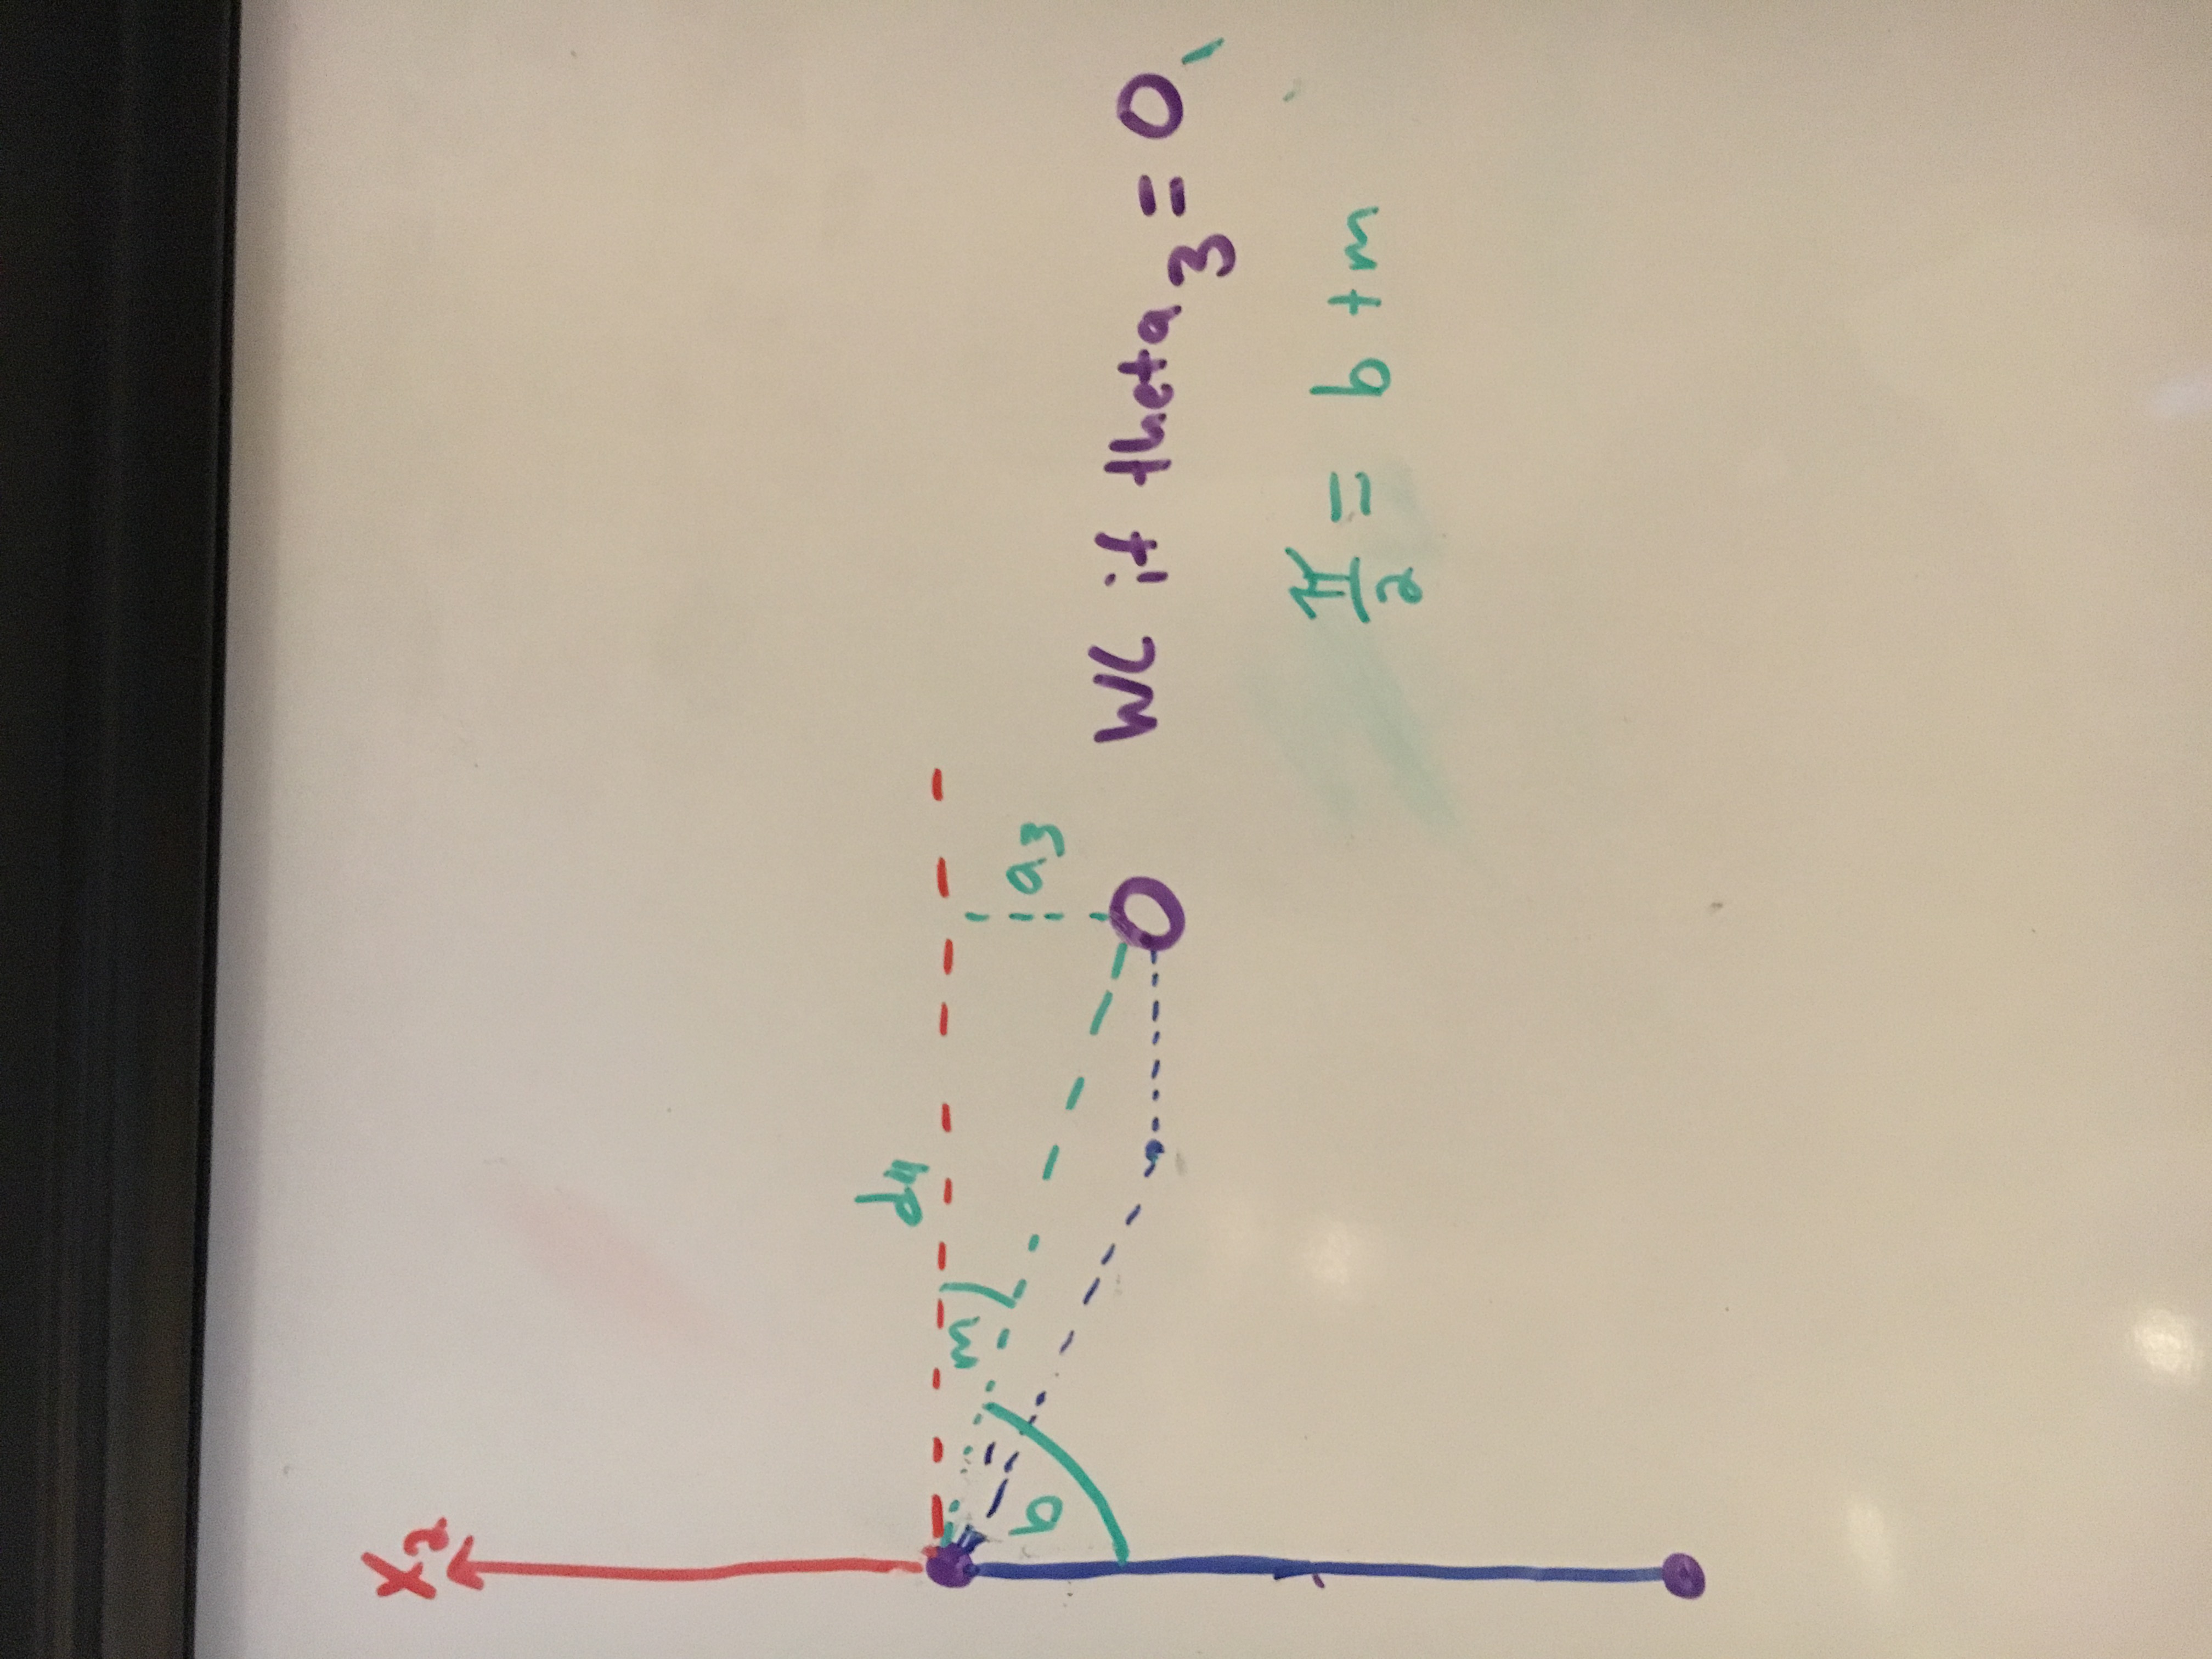 X₂
d4
m
b
a3
WC if theta₃ = 0,
π/2 = b + m